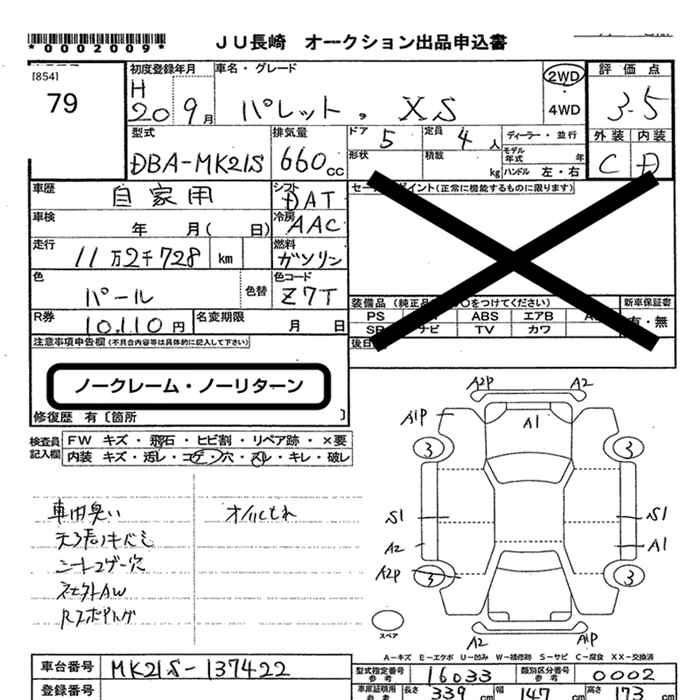 *0002009*
JU長崎 オークション出品申込書
[854]
79
初度登録年月
H
20 9月
車名・グレード
パレット , XS
2WD
4WD
評価点
3.5
外装 内装
C D
型式
DBA-MK21S
排気量
660cc
ドア 5
定員 4人
ディーラー・並行
形状
積載 kg
モデル年式 年
ハンドル 左・右
車歴
自家用
シフト
DAT
車検
年 月( 日)
冷房
AAC
走行
11万2千728 km
燃料
ガソリン
色
パール
色替
色コード
Z7T
R券
10,110円
名変期限
月 日
装備品(純正品 ○をつけてください)
新車保証書
PS ABS エアB
SR ナビ TV カワ
有・無
後日
注意事項申告欄(不具合内容等は具体的に記入して下さい)
ノークレーム・ノーリターン
修復歴 有〔箇所 〕
検査員記入欄
FW キズ・飛石・ヒビ割・リペア跡・×要
内装 キズ・汚レ・コゲ・穴・スレ・キレ・破レ
車内臭い
オイルもれ
シートコゲ・穴
A2P A2
A1P A1
3 3
S1 S1
A2 A1
A2P
3 3
スペア
A2 A1P
A−キズ E−エクボ U−凹み W−補修跡 S−サビ C−腐食 XX−交換済
車台番号
MK21S-137422
登録番号
型式指定番号 参考
16033
類別区分番号 参考
0002
車庫証明用 参考
長さ 339cm
幅 147cm
高さ 173cm